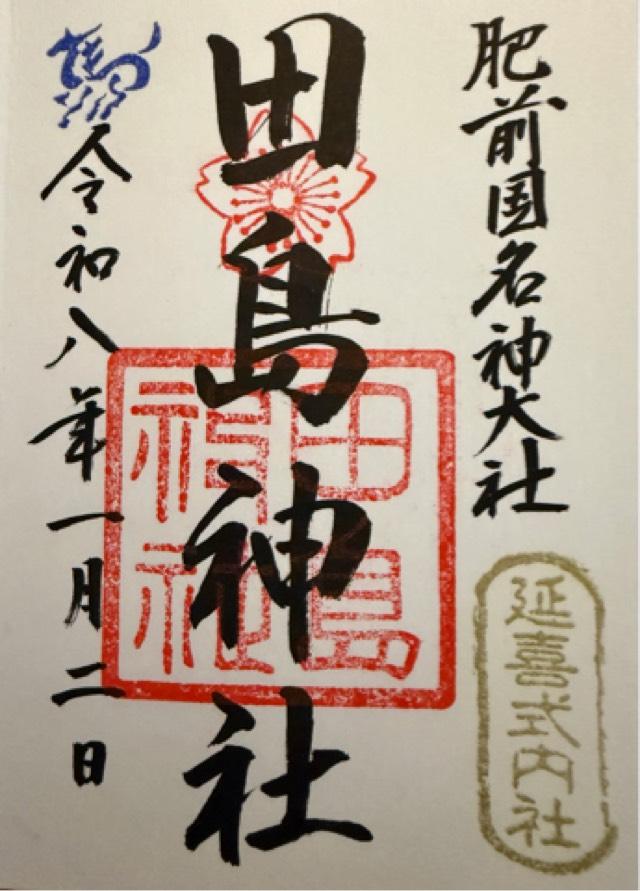 肥前国名神大社
延喜式内社
田島神社
田島
神社
令和八年一月二日